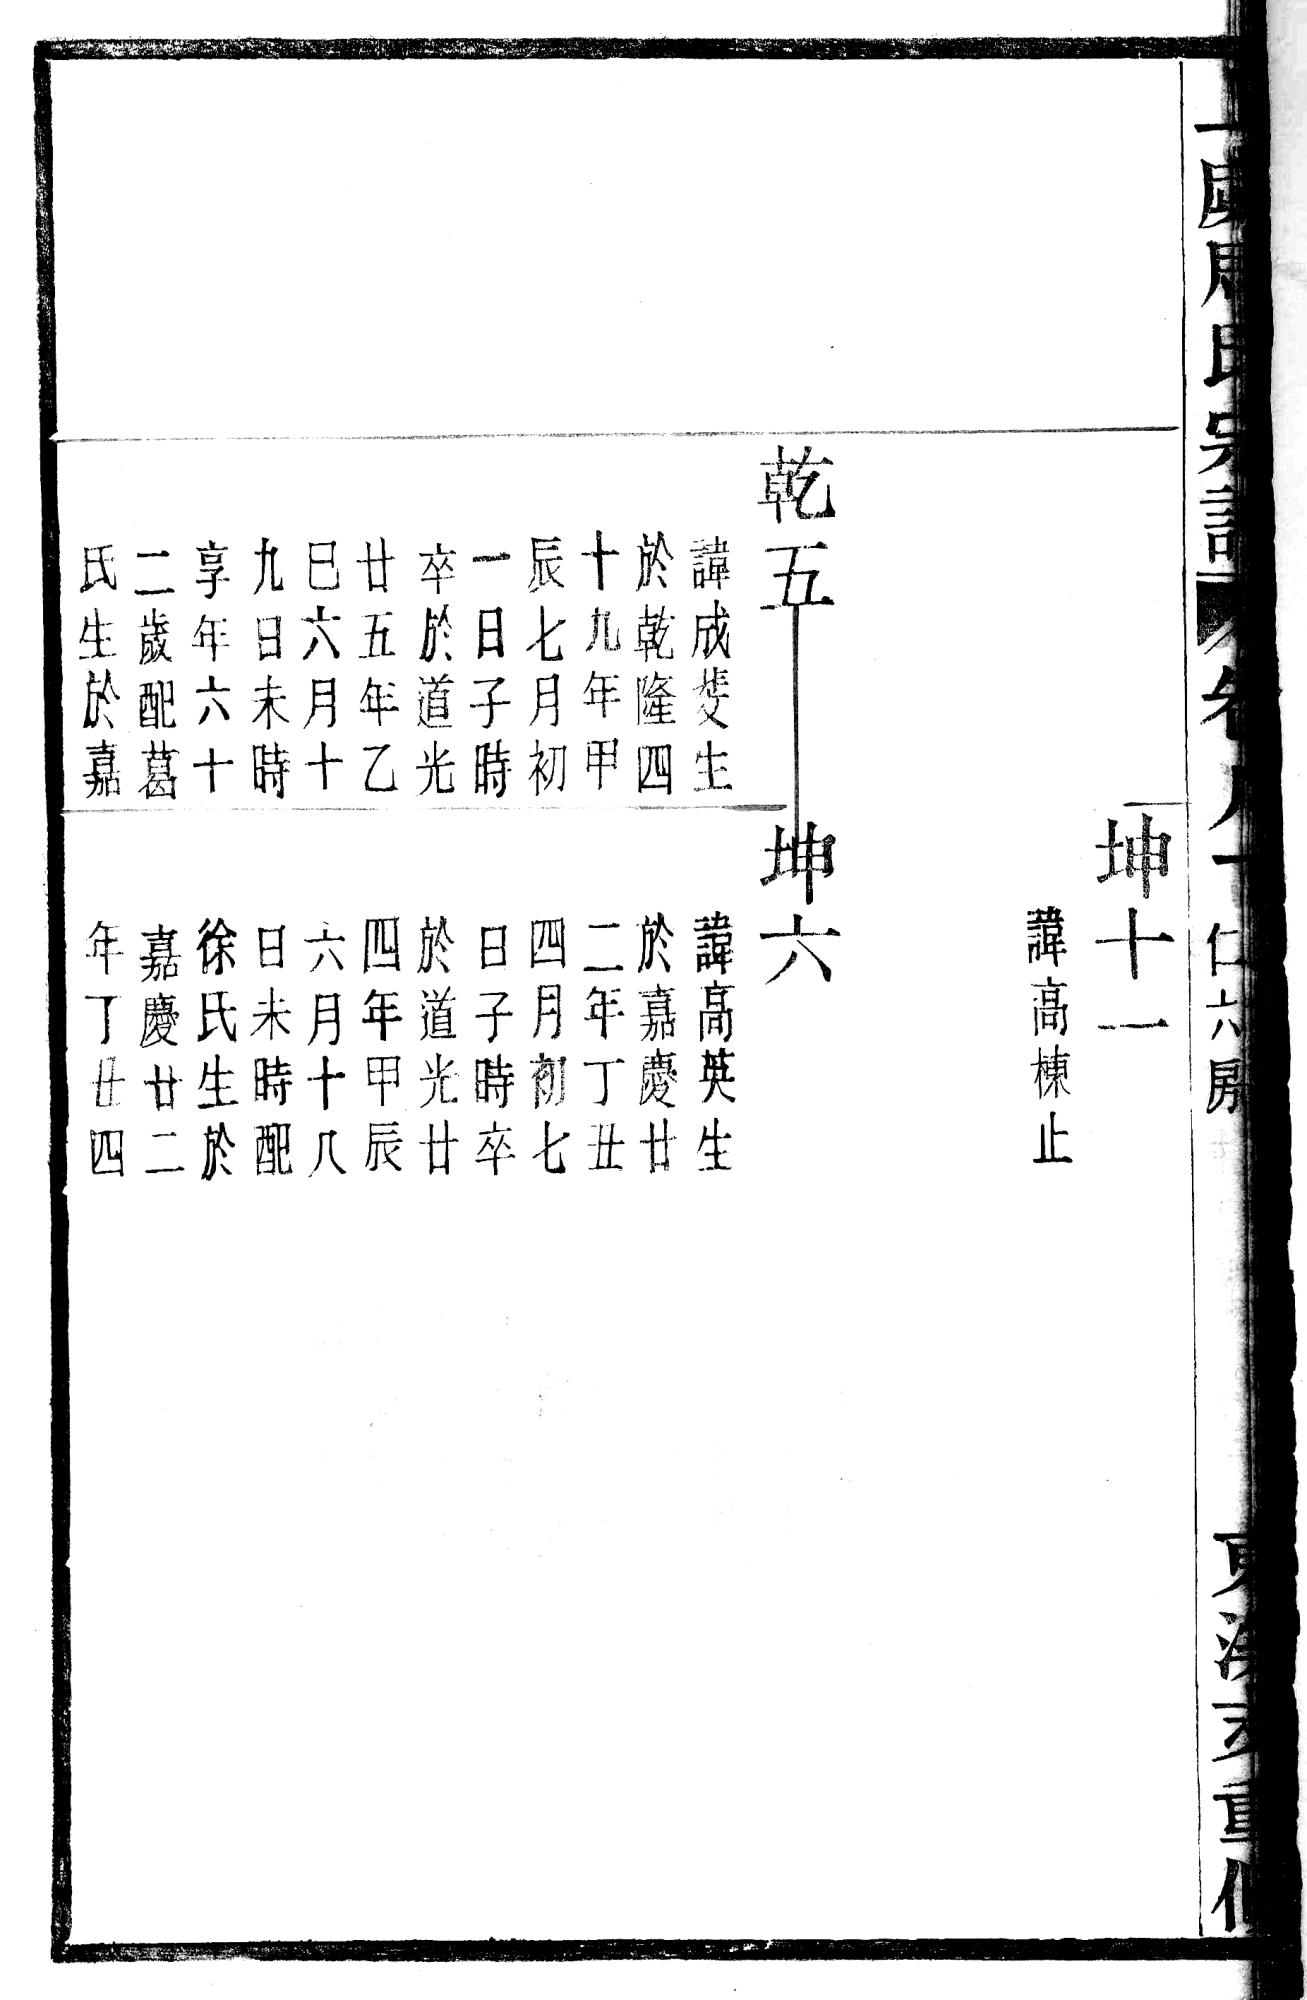 坤十一
諱高棟止
乾五
諱成斐生
於乾隆四
十九年甲
辰七月初
一日子時
卒於道光
廿五年乙
巳六月十
九日未時
享年六十
二歲配葛
氏生於嘉
坤六
諱高英生
於嘉慶廿
二年丁丑
四月初七
日子時卒
於道光廿
四年甲辰
六月十八
日未時配
徐氏生於
嘉慶廿二
年丁丑四
周氏宗譜
仁六房
重修